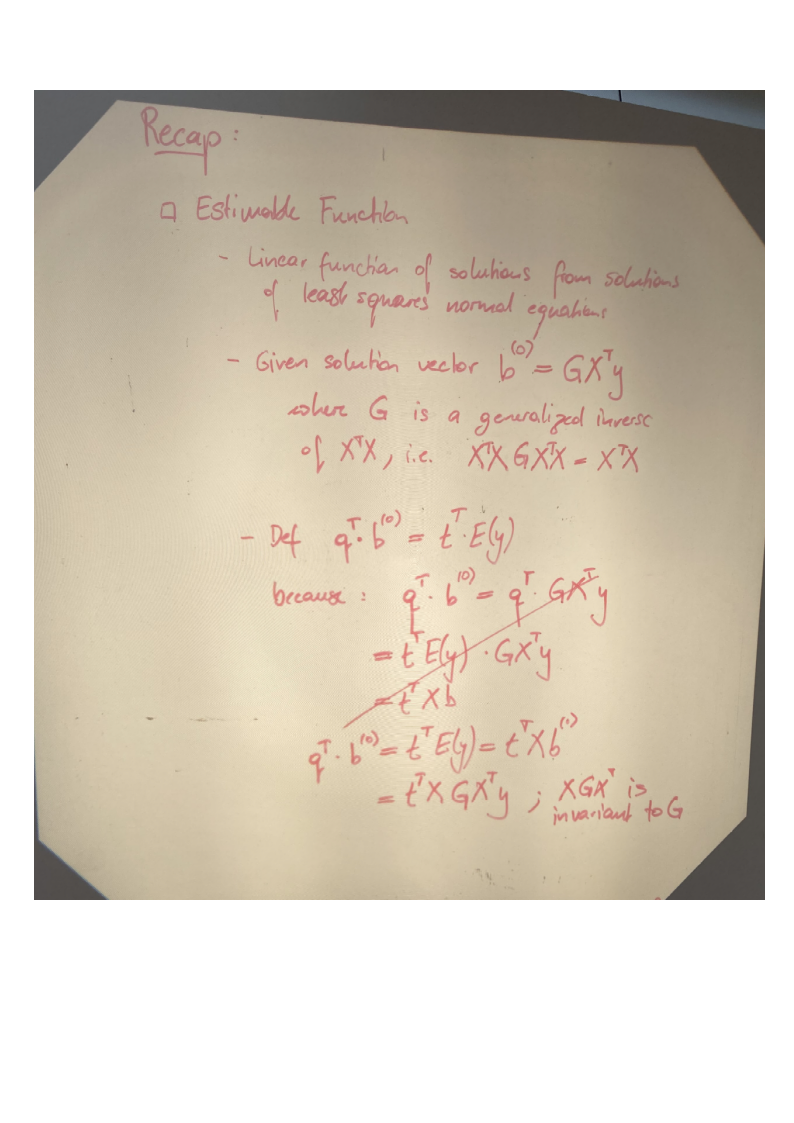 Recap:
□ Estimable Function
- Linear function of solutions from solutions
of least squares normal equations
- Given solution vector b^(0) = GX^Ty
where G is a generalized inverse
of X^TX, i.e. X^TX GX^TX = X^TX
- Def q^T·b^(0) = t^T·E(y)
because: q^T·b^(0) = q^T·GX^Ty
= t^TE(y)·GX^Ty
= t^TXb
q^T·b^(0) = t^TE(y) = t^TXb^(0)
= t^TXGX^Ty ; XGX^T is
invariant to G